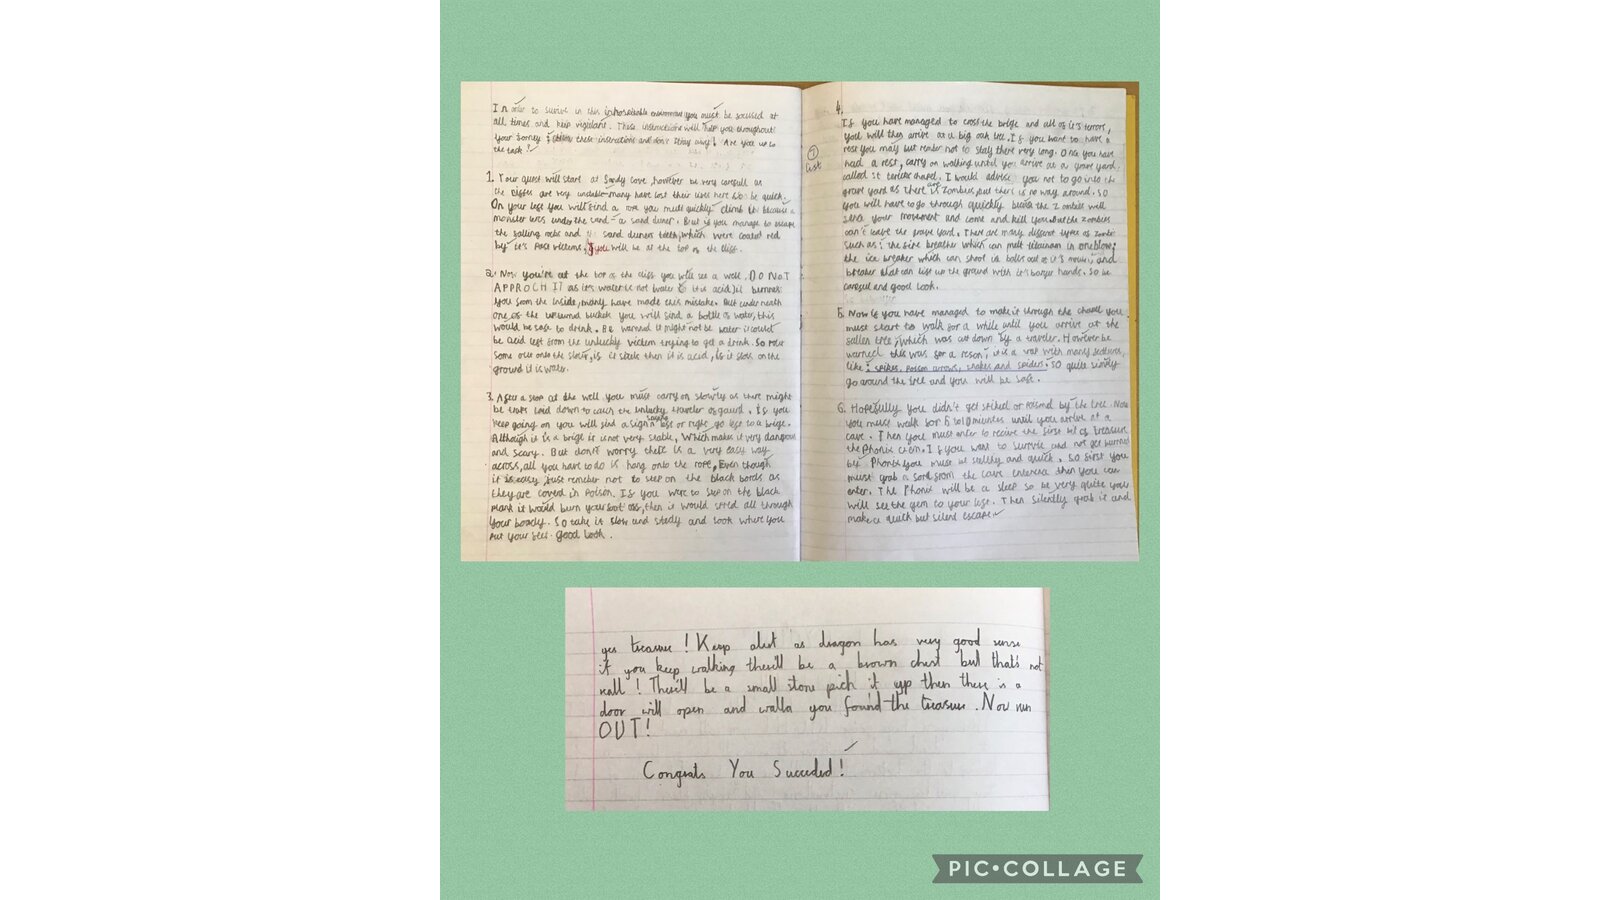 In order to survive in this inhospitable enviroment you must be focused at
all times and keep vigilant. These instructions will help you throughout
your Jorney follow these instructions and don't stray away! Are you up to
the task?
1. Your quest will start at Sandy Cove, however be very carefull as
the cliffes are very unstable many have lost their lives here so be quick.
On your left you will find a rope you must quickly climb it because a
monster lives under the sand - a sand duner. But if you manage to escape
the falling rocks and sand duners teeth, which were coated red
by it's past victems, you will be at the top of the cliff.
2. Now you're at the top of the cliff you will see a well. DO NOT
APPROCH IT as its water is not water it is acid, it burnes
you from the inside, many have made this mistake. But under neath
one of the upturned buckets you will find a bottle of water, this
would be safe to drink. Be warned it might not be water it could
be acid left from the unlucky victem trying to get a drink. So pour
some out onto the floor, if it sizels then it is acid, if it stays on the
ground it is water.
3. After a stop at the well you must carry on slowly as there might
be traps laid down to catch the unlucky traveler of gaurd. If you
keep going on you will find a sign saying left or right go left to a brige.
Although it is a brige it is not very stable, which makes it very dangous
and scary. But don't worry there is a very easy way
across, all you have to do is hang onto the rope, Even though
it is easy just remeber not to step on the black bords as
they are coverd in poison. If you were to step on the black
plank it would burn your foot off, then it would spred all through
your boady. So take it slow and stedy and look where you
put your feet. good look.
4.
If you have managed to cross the brige and all of it's terrors,
you will then arrive at a big oak tree. If you want to have a
rest you may but rember not to stay there very long. Once you have
had a rest, carry on walking until you arrive at a grave yard
called St chapel. I would advise you not to go into the
grave yard as there are Zombies, but there is no way around. So
you will have to go through quickly because the Zombies will
sence your movement and come and kill you but the zombies
can't leave the grave yard. There are many different types of Zombie
such as: the fire breather which can melt titainum in one blow;
the ice breaker which can shoot ice balls out of it's mouth; and
breaker that can lift up the ground with it's hands. So be
careful and good look.
5. Now if you have managed to make it through the chapel you
must start to walk for a while until you arrive at the
fallen tree, which was cut down by a traveler. However be
warned this was for a reson, it is a trap with many features,
like: spikes, poison arrows, snakes and spiders. So quite simply
go around the tree and you will be safe.
6. Hopefully you didn't get spiked or poisned by the tree. Now
you must walk for 5 to 10 minutes until you arrive at a
cave. Then you must enter to recive the first bit of treasure
the Phonix Gem. If you want to survive and not get burned
by Phonix you must be stelthy and quick. So first you
must grab a from the cave enterence then you can
enter. The Phonix will be a sleep so be very quite you
will see the gem to your left. Then silently grab it and
make a quick but silent escape.
1
list
yes treasure! Keep alert as dragon has very good sense
if you keep walking there'll be a brown chest but that's not
all! There'll be a small stone pick it up then there is a
door will open and walla you found the treasure. Now run
OUT!
Congrats You Succeded!
PIC•COLLAGE